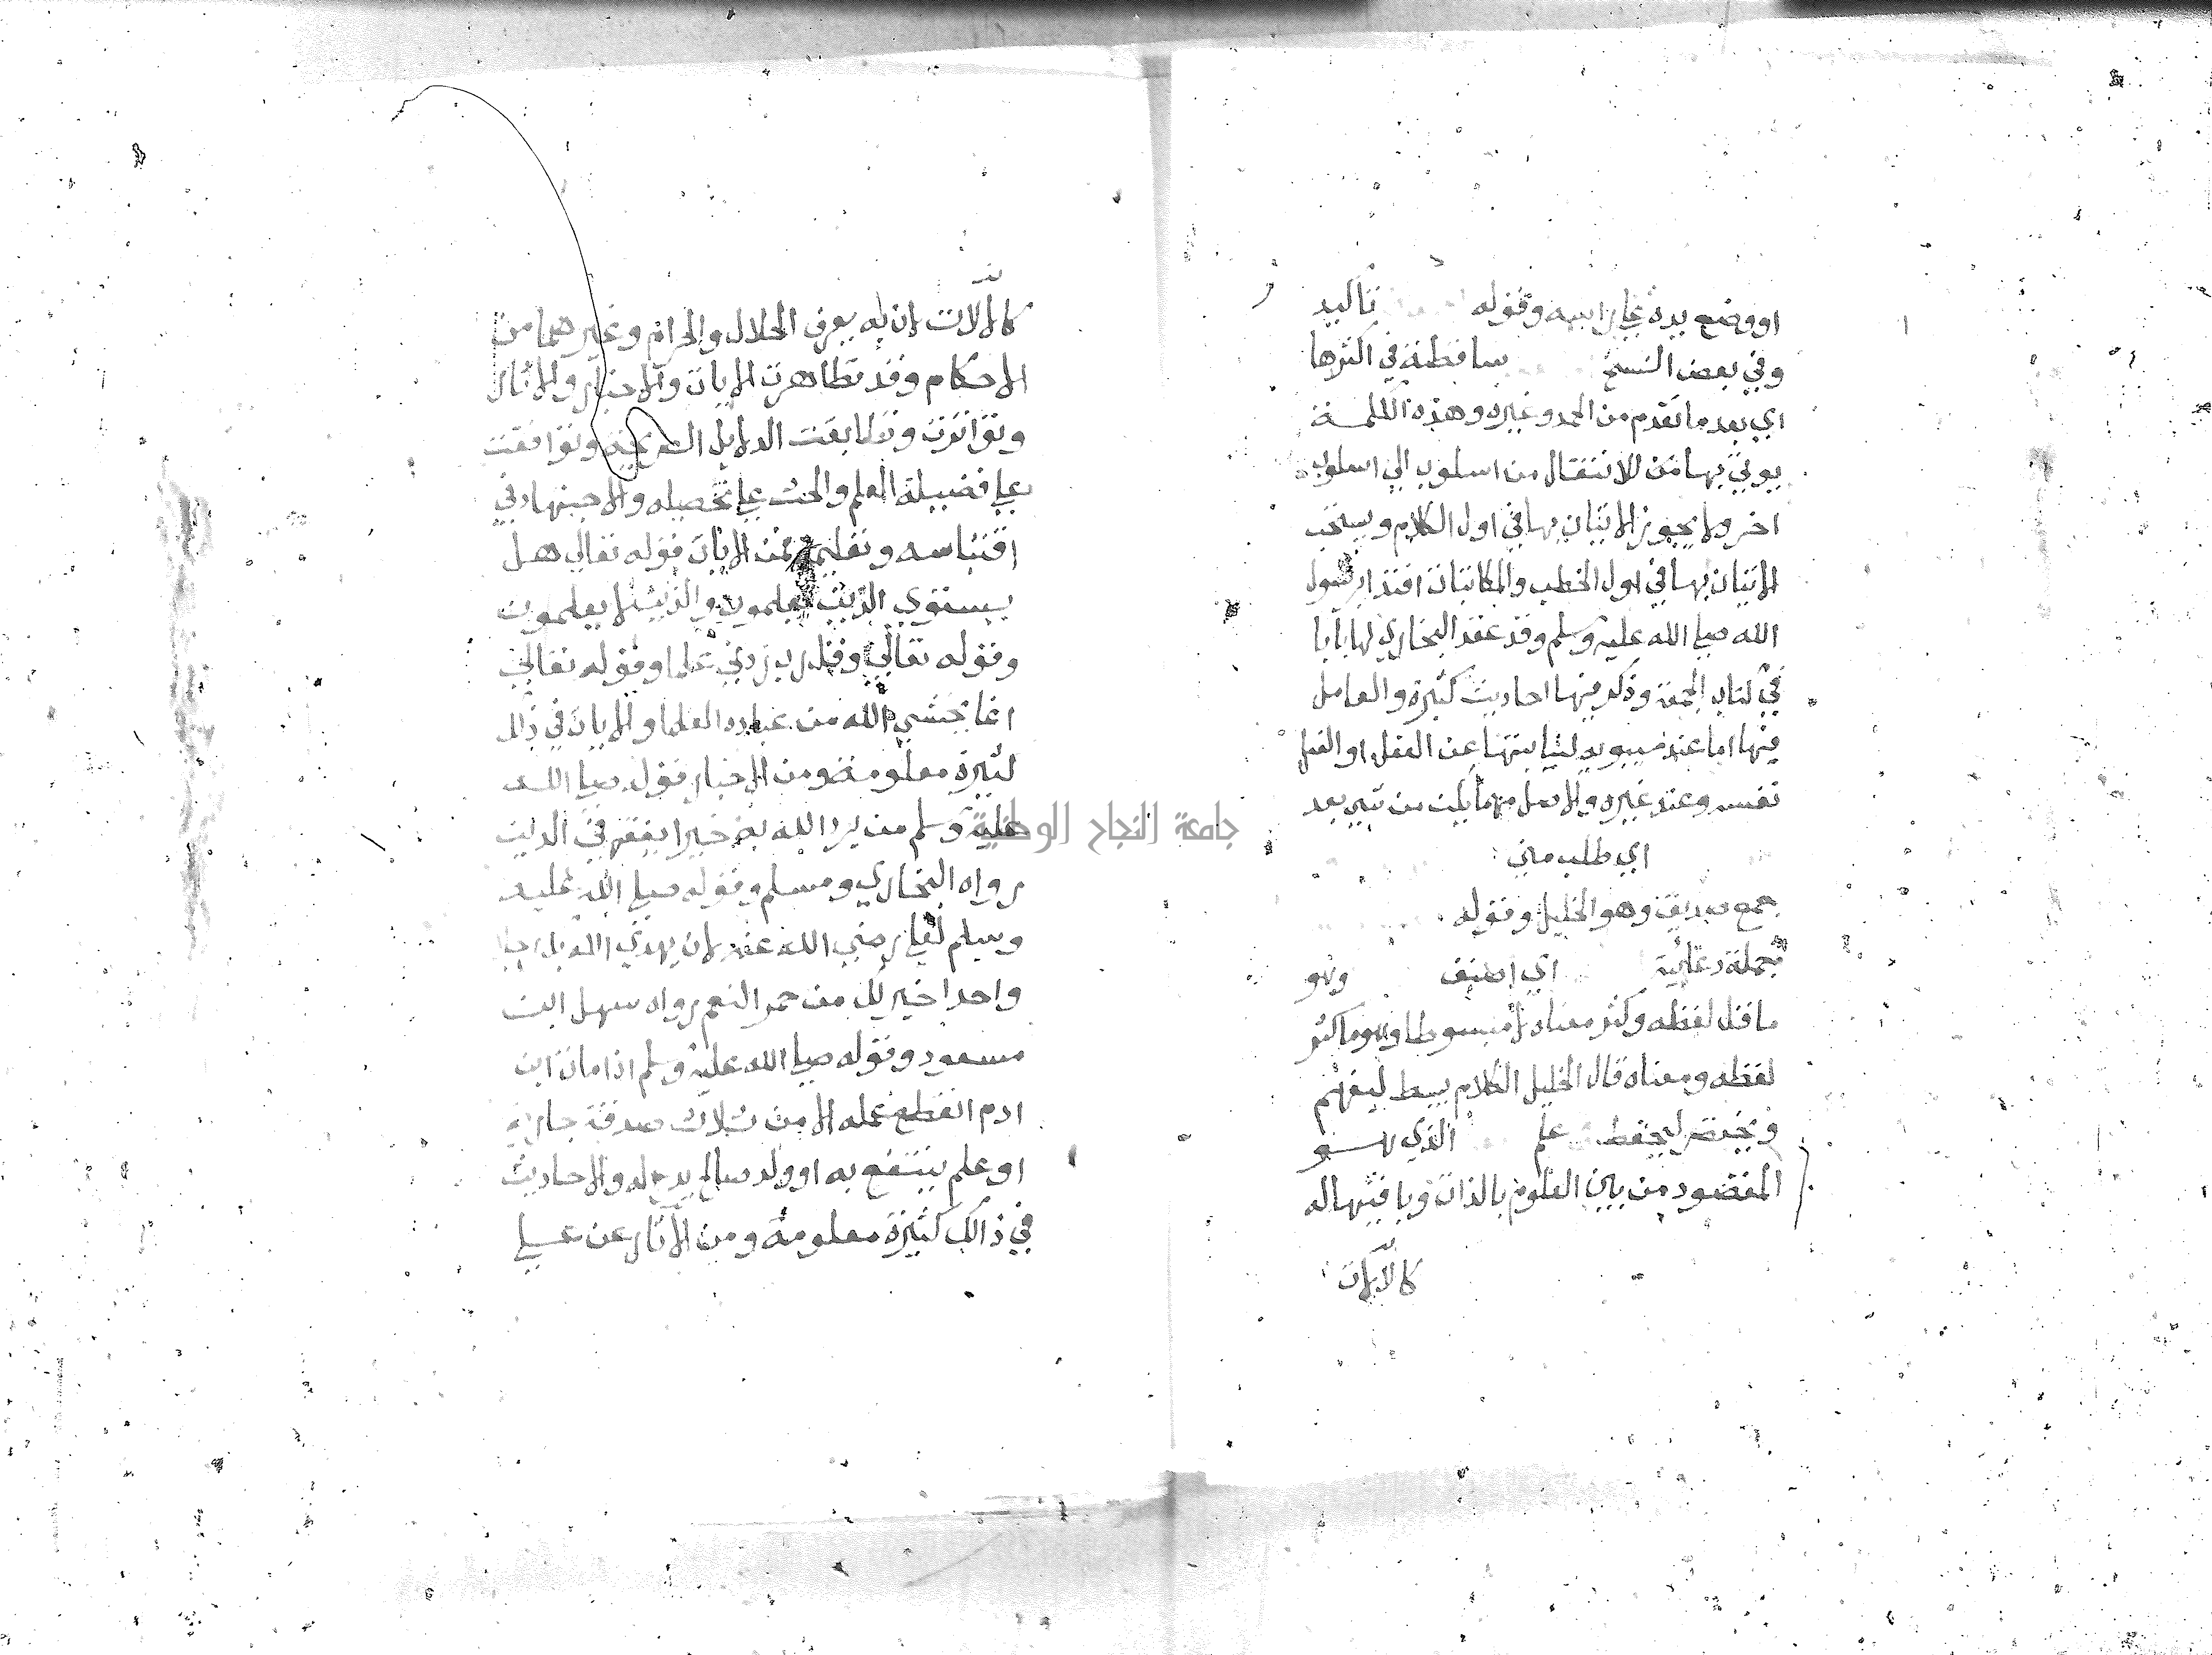 او وضع يده علي راسه وقوله تاكيد
وفي بعض النسخ ساقطة في اكثرها
اي بعد ما تقدم من الحمد وغيره وهذه الكلمة
يوتي بها للانتقال من اسلوب الي اسلوب
اخر ولا يجوز الاتيان بها في اول الكلام ويستحب
الاتيان بها في اول الخطب والمكاتبات اقتدا برسول
الله صلي الله عليه وسلم وقد عقد البخاري لها بابا
في كتاب الجمعة وذكر فيها احاديث كثيرة والعامل
فيها اما عند سيبويه لنيابتها عن الفعل او الفعل
نفسه وعند غيره والاصل مهما يكن من شي بعد
اي طلب مني
جمع صديق وهو الخليل وقوله
جملة دعائية اي اصنف وهو
ما قل لفظه وكثر معناه لا مبسوطا وهو ما كثر
لفظه ومعناه قال الخليل الكلام يبسط ليفهم
ويختصر ليحفظ علم الذي هو
المقصود من بين العلوم بالذات وباقيها له
كالالات
كالالات لان به يعرف الحلال والحرام وغيرهما من
الاحكام وقد تظاهرت الايات والاخبار والاثار
وتواترت وتطابقت الدلايل الصريحة وتوافقت
علي فضيلة العلم والحث علي تحصيله والاجتهاد في
اقتباسه وتعليمه فمن الايات قوله تعالي هل
يستوي الذين يعلمون والذين لا يعلمون
وقوله تعالي وقل رب زدني علما وقوله تعالي
انما يخشي الله من عباده العلما والايات في ذلك
كثيرة معلومة ومن الاخبار قوله صلي الله
عليه وسلم من يرد الله به خيرا يفقهه في الدين
رواه البخاري ومسلم وقوله صلي الله عليه
وسلم لعلي رضي الله عنه لان يهدي الله بك رجلا
واحدا خير لك من حمر النعم رواه سهل ابن
مسعود وقوله صلي الله عليه وسلم اذا مات ابن
ادم انقطع عمله الا من ثلاث صدقة جارية
او علم ينتفع به او ولد صالح يدعو له والاحاديث
في ذالك كثيرة معلومة ومن الاثار عن علي
جامعة النجاح الوطنية